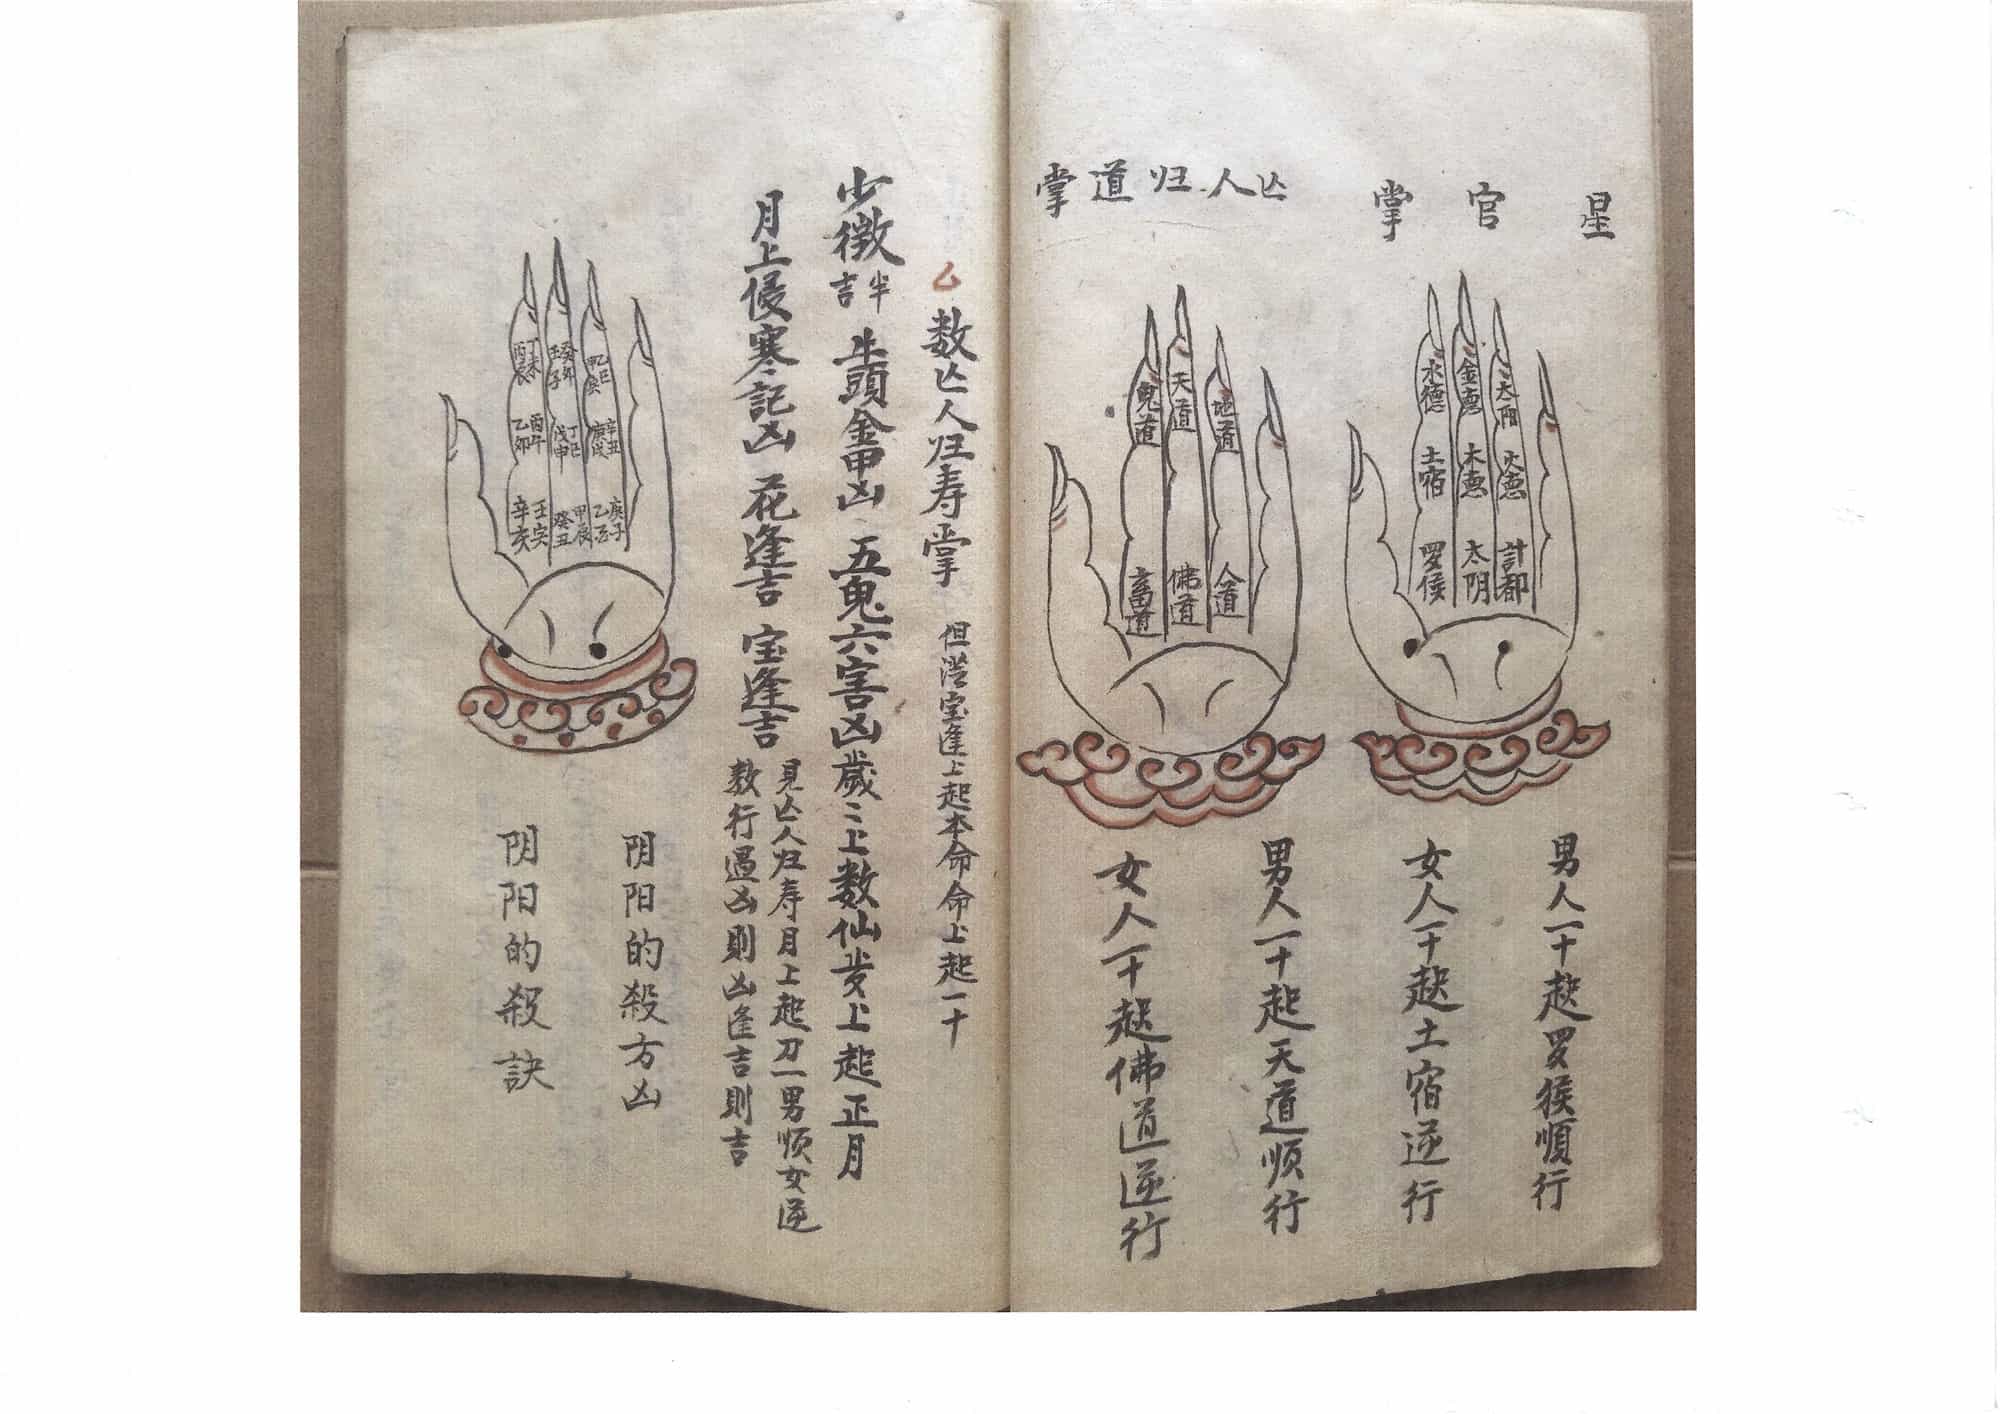 星官掌
水德
金德
太阳
土宿
木德
火德
罗侯
太阴
計都
男人一十起罗侯順行
女人一十起土宿逆行
亾人归道掌
鬼道
天道
地道
畜道
佛道
人道
男人一十起天道顺行
女人一十起佛道逆行
数亾人归寿掌 但從宝逢上起本命命上起一十
少微半吉 牛頭金甲凶 五鬼六害凶歲〻上数仙 上起正月
月上侵寒記凶 花逢吉 宝逢吉
見亾人归寿月上起刀一男顺女逆
数行過凶則凶逢吉則吉
丙辰
丁未
壬子
癸年
乙巳
乙卯
酉午
戊申
丁巳
庚戌
辛丑
辛亥
壬寅
癸丑
甲辰
庚子
阴阳的殺方凶
阴阳的殺訣